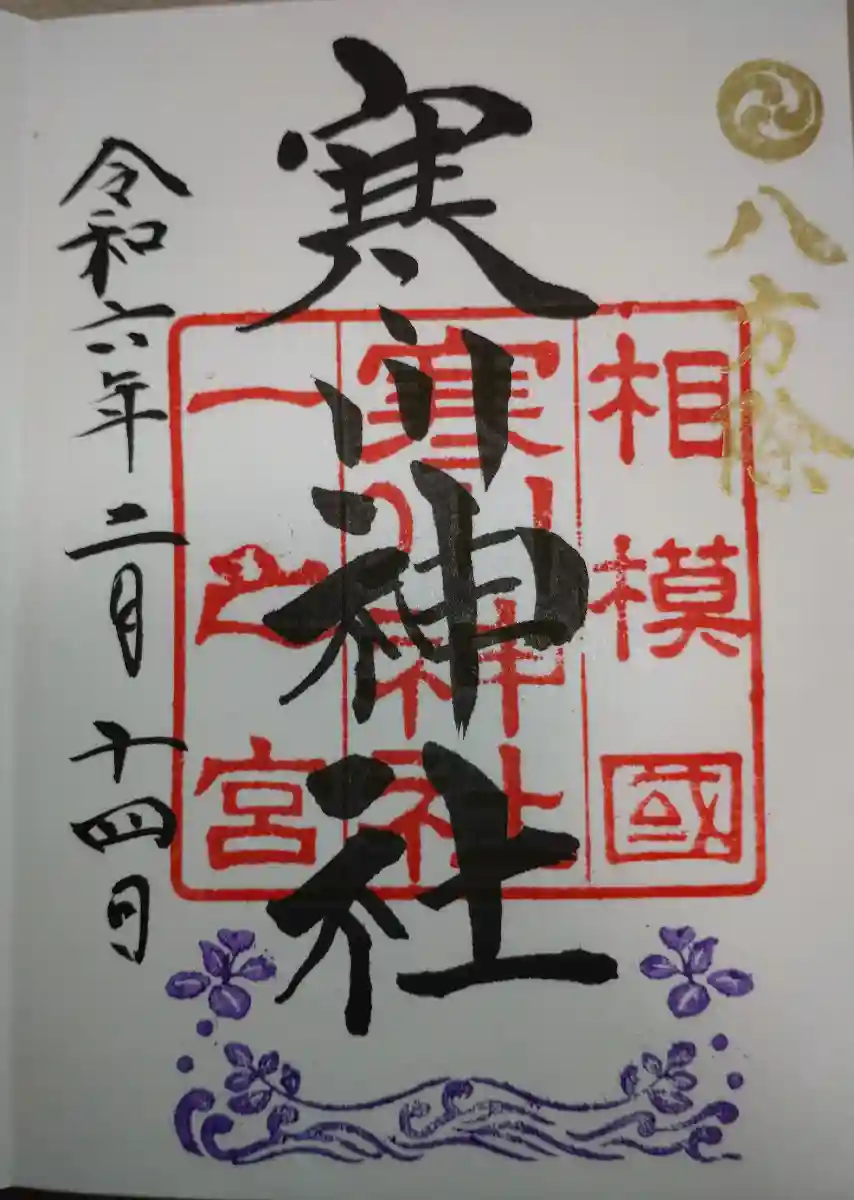 八方除
相模國
寒川神社
一之宮
寒川神社
令和六年二月十四日